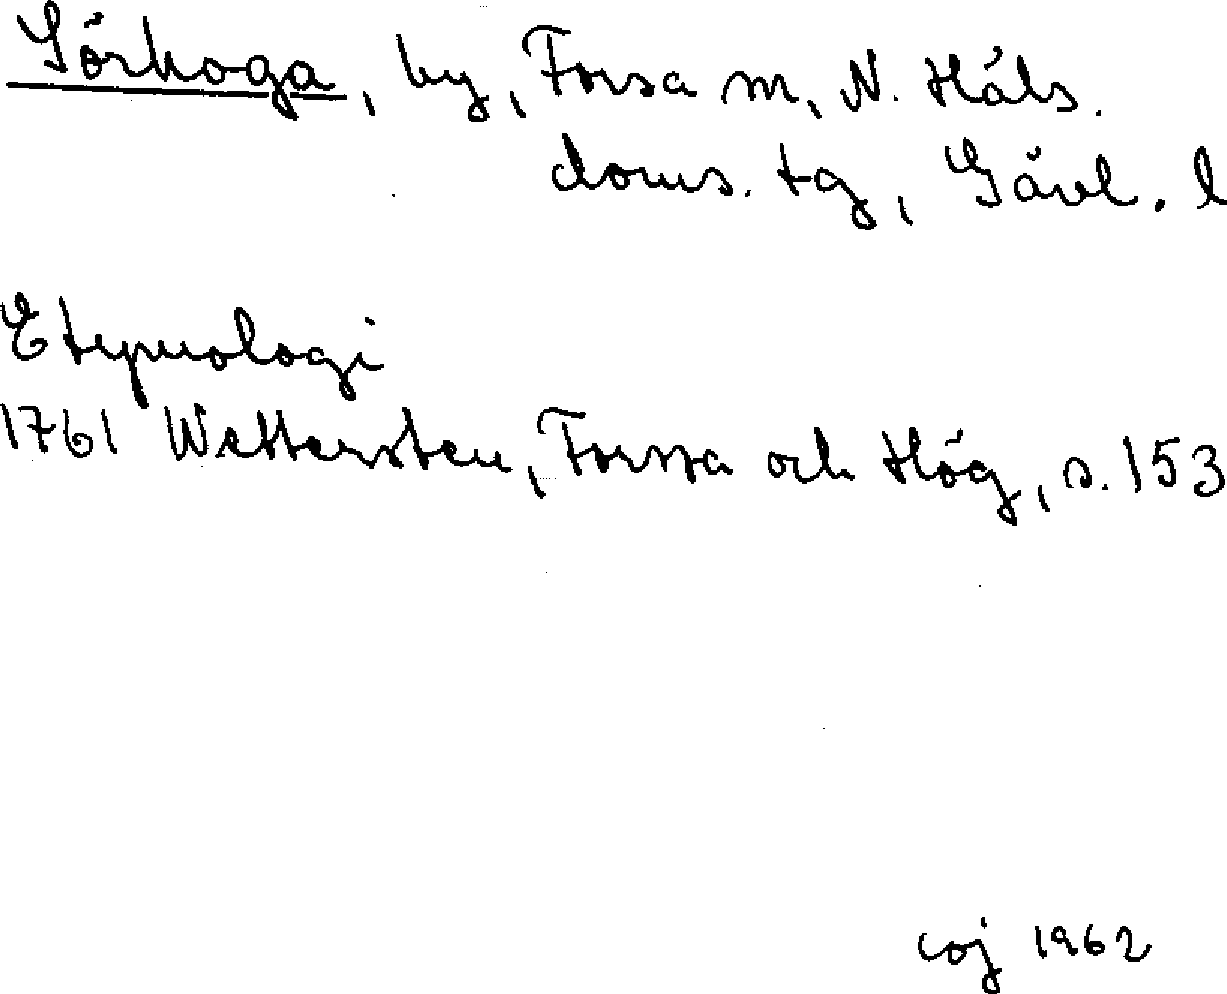 Sörhoga, by, Forsa sn, N. Häls.
doms. tg, Gävl. l
Etymologi
1761 Wettersten, Forssa och Hög, s. 153
coj 1962